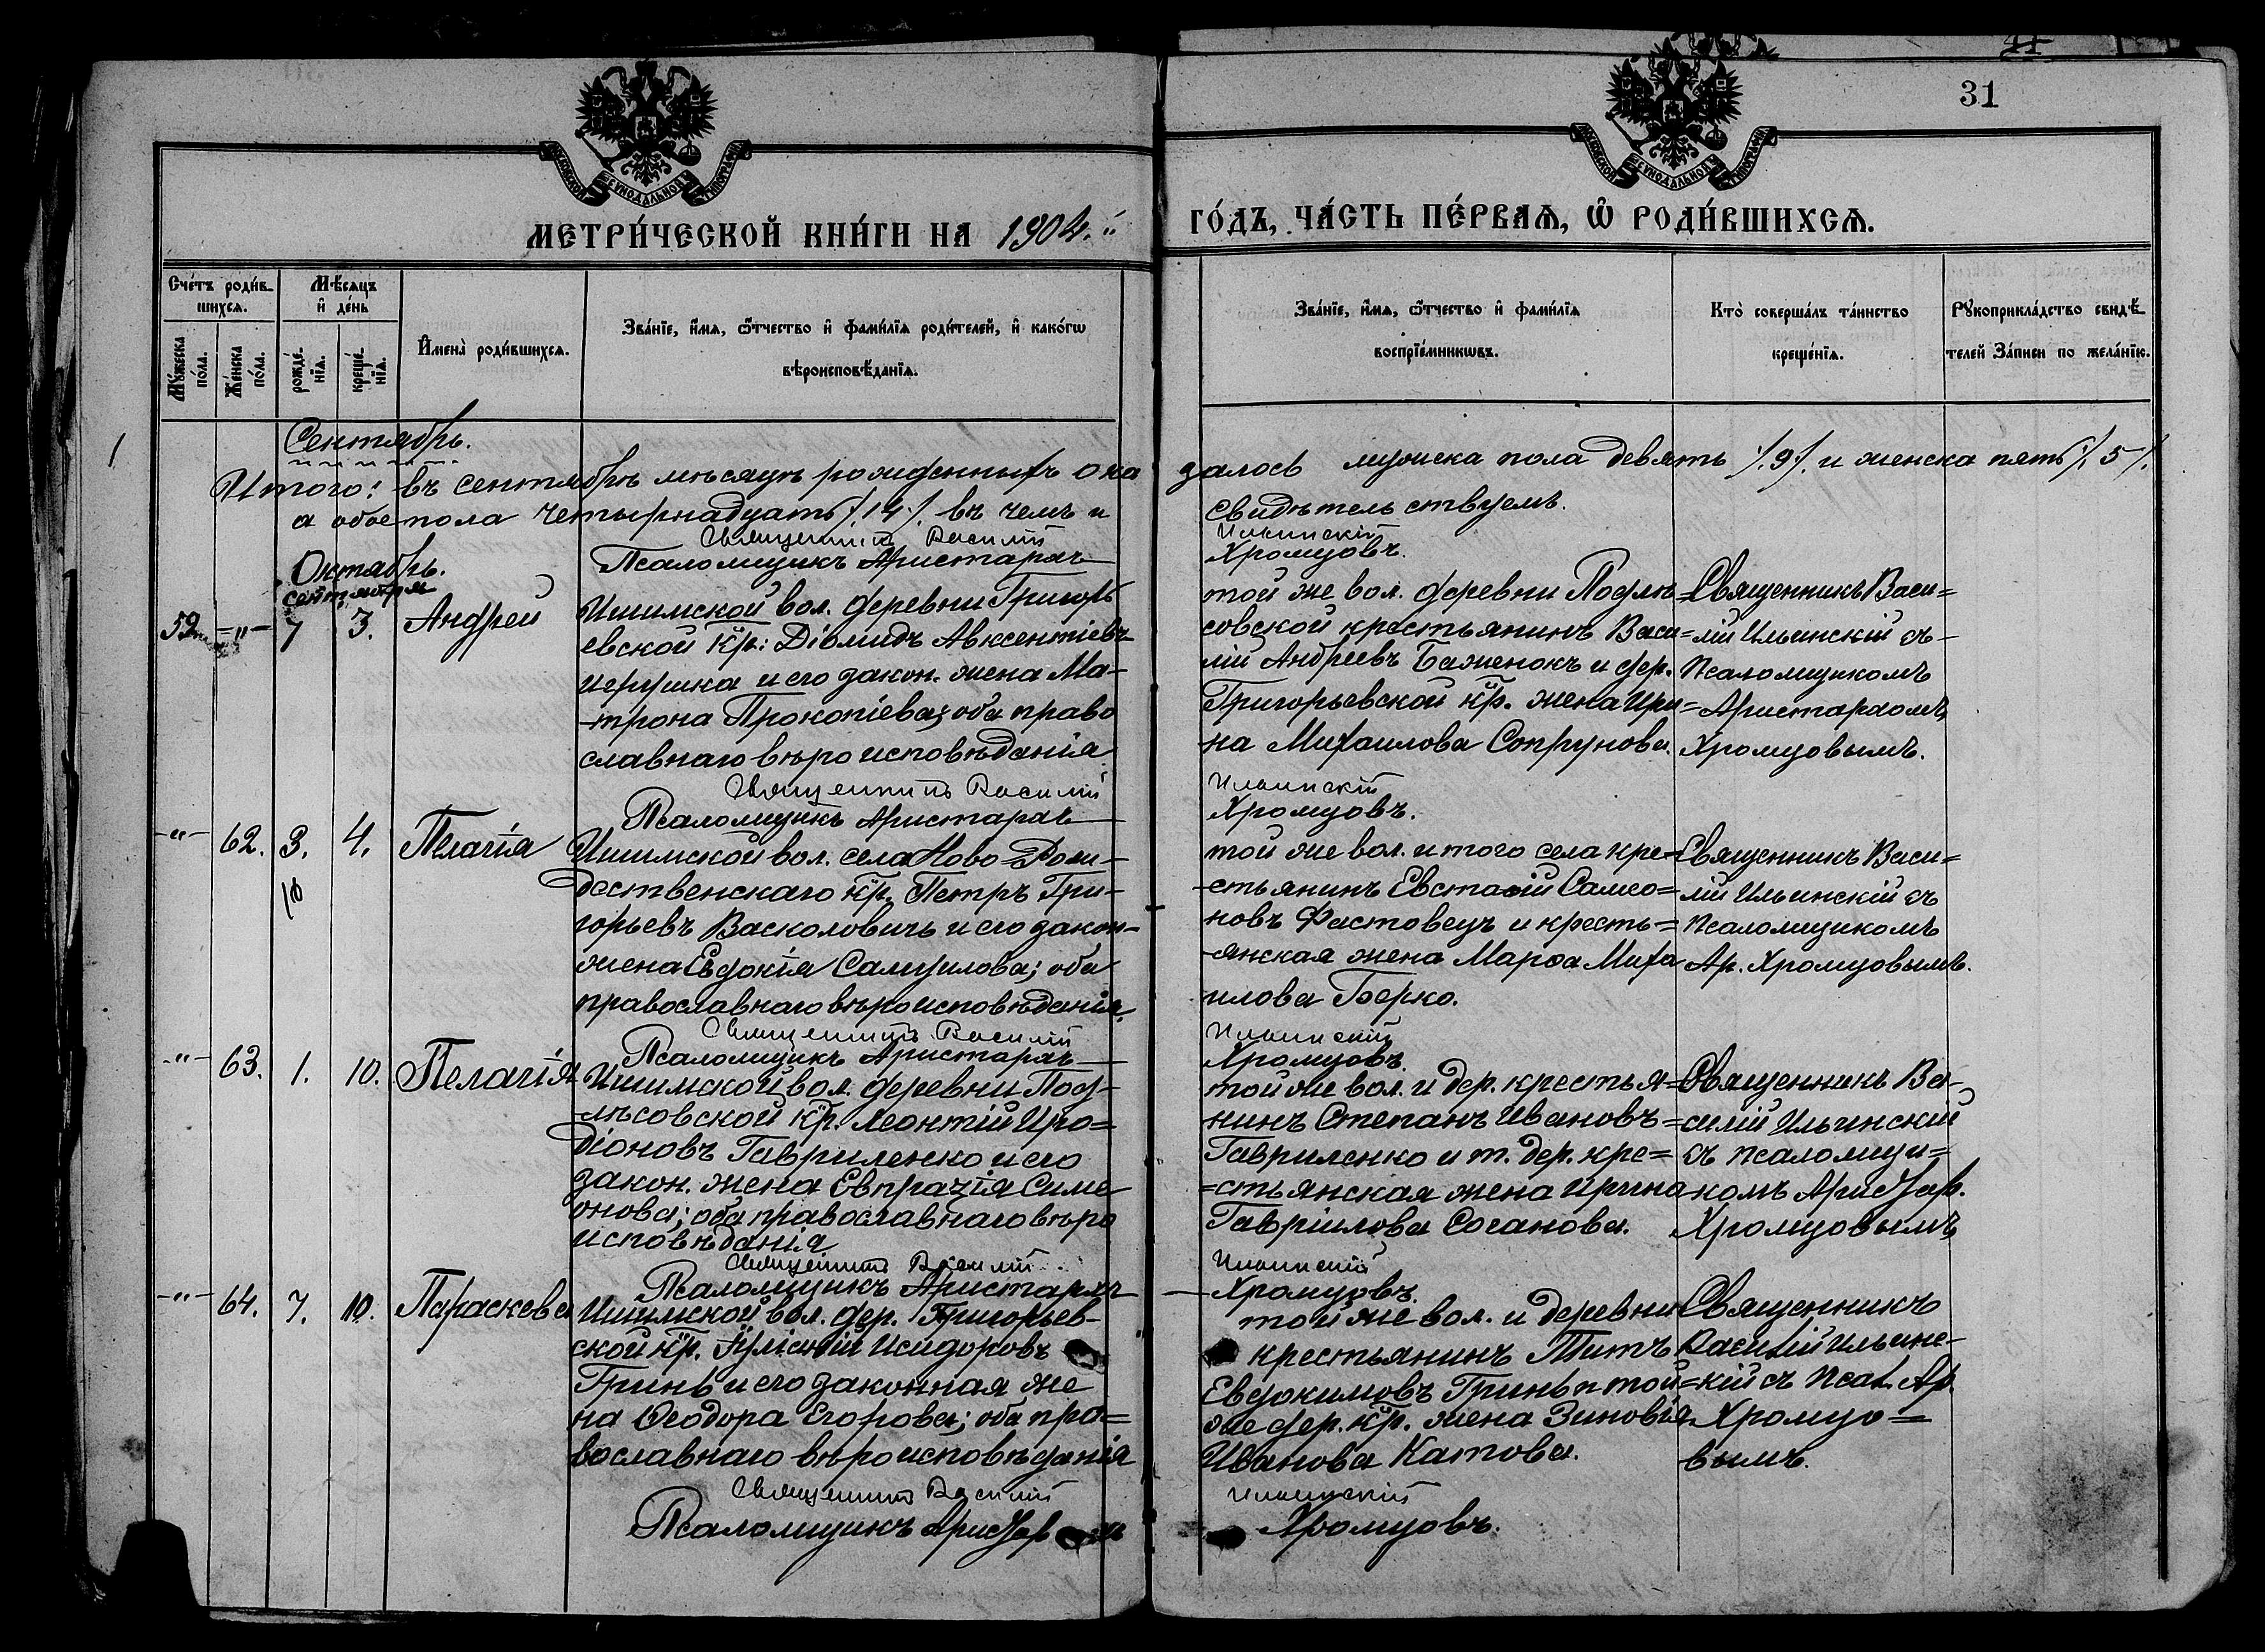 31
МЕТРИ́ЧЕСКОЙ КНИ́ГИ НА 1904.
ГО́ДЪ, ЧА́СТЬ ПЕ́РВАѦ, Ѡ҆ РОДИ́ВШИХСѦ.
Сче́тъ роди́в-
шихсѧ.
Мꙋ́жеска
по́ла.
Же́нска
по́ла.
Мѣ́сѧцъ
и҆ де́нь
рожде́-
нїѧ.
креще́-
нїѧ.
И҆мена̀ роди́вшихсѧ.
Зва́нїе, и҆́мѧ, ѻ҆́тчество и҆ фами́лїѧ роди́телей, и҆ како́гѡ
вѣроисповѣ́данїѧ.
Зва́нїе, и҆́мѧ, ѻ҆́тчество и҆ фами́лїѧ
воспрїе́мникѡвъ.
Кто̀ соверша́лъ та́инство
креще́нїѧ.
Рꙋкоприкла́дство свидѣ́-
телей За́писи по жела́нїю.
Сентябрь.
Итого: въ сентябрѣ мѣсяцѣ рожденныхъ ока
залось мужеска пола девять /.9/. и женска пять /.5/.
а обоепола четырнадцать /.14/. въ чемъ и
свидѣтельствуемъ.
Священникъ Василій
Ильинскій
Псаломщикъ Аристархъ
Хромцовъ.
Октябрь.
сентября
59. -"- 7 3. Андрей
Ишимской вол. деревни Григорь
евской кр: Діомидъ Авксентіевъ
и его закон. жена Ма-
трона Прокопіева; оба право
славнаго вѣроисповѣданія
той же вол. деревни Подлѣ-
совской крестьянинъ Васи=
лій Андреевъ Баженокъ и дер.
Григорьевской кр. жена Ири=
на Михаилова Сопрунова.
Священникъ Васи=
лій Ильинскій съ
Псаломщикомъ
Аристархомъ
Хромцовымъ.
Священникъ Василій
Ильинскій
Псаломщикъ Аристархъ
Хромцовъ.
-"- 62. 3. 4. Пелагія
10
Ишимской вол. села Ново-Рож-
дественскаго кр. Петръ Гри-
горьевъ Васколовичъ и его закон-
жена Евдокія Самуилова; оба
православнаго вѣроисповѣданія.
той же вол. и того села кре-
стьянинъ Евстафій Самсо=
новъ Фастовецъ и кресть=
-янская жена Марѳа Миха
илова Берко.
Священникъ Васи=
лій Ильинскій съ
Псаломщикомъ
Ар. Хромцовымъ.
Священникъ Василій
Ильинскій
Псаломщикъ Аристархъ
Хромцовъ.
-"- 63. 1. 10. Пелагія
Ишимской вол. деревни Под-
лѣсовской кр. Леонтій Иро=
діоновъ Гавриленко и его
закон. жена Евпрахія Симе
онова; оба православнаго вѣро
исповѣданія
той же вол. и дер. крестья=
нинъ Степанъ Ивановъ=
Гавриленко и т. дер. кре=
=стьянская жена Ирина
Гавріилова Соганова.
Священникъ Ва-
силій Ильинскій
съ псаломщи=
комъ Аристар.
Хромцовымъ
Священникъ Василій
Ильинскій
Псаломщикъ Аристархъ
Хромцовъ.
-"- 64. 7. 10. Параскева
Ишимской вол. дер. Григорьев-
ской кр. Іуліаній Исидоровъ
Гринь и его законная же
на Ѳеодора Егорова; оба пра=
вославнаго вѣроисповѣданія
той же вол. и деревни
крестьянинъ Титъ
Евдокимовъ Гринь и той=
же дер. кр. жена Зиновія
Иванова Катова.
Священникъ
Василій Ильинс-
кій съ Псал. Ар.
Хромцо=
вымъ.
Священникъ Василій
Ильинскій
Псаломщикъ
Хромцовъ.